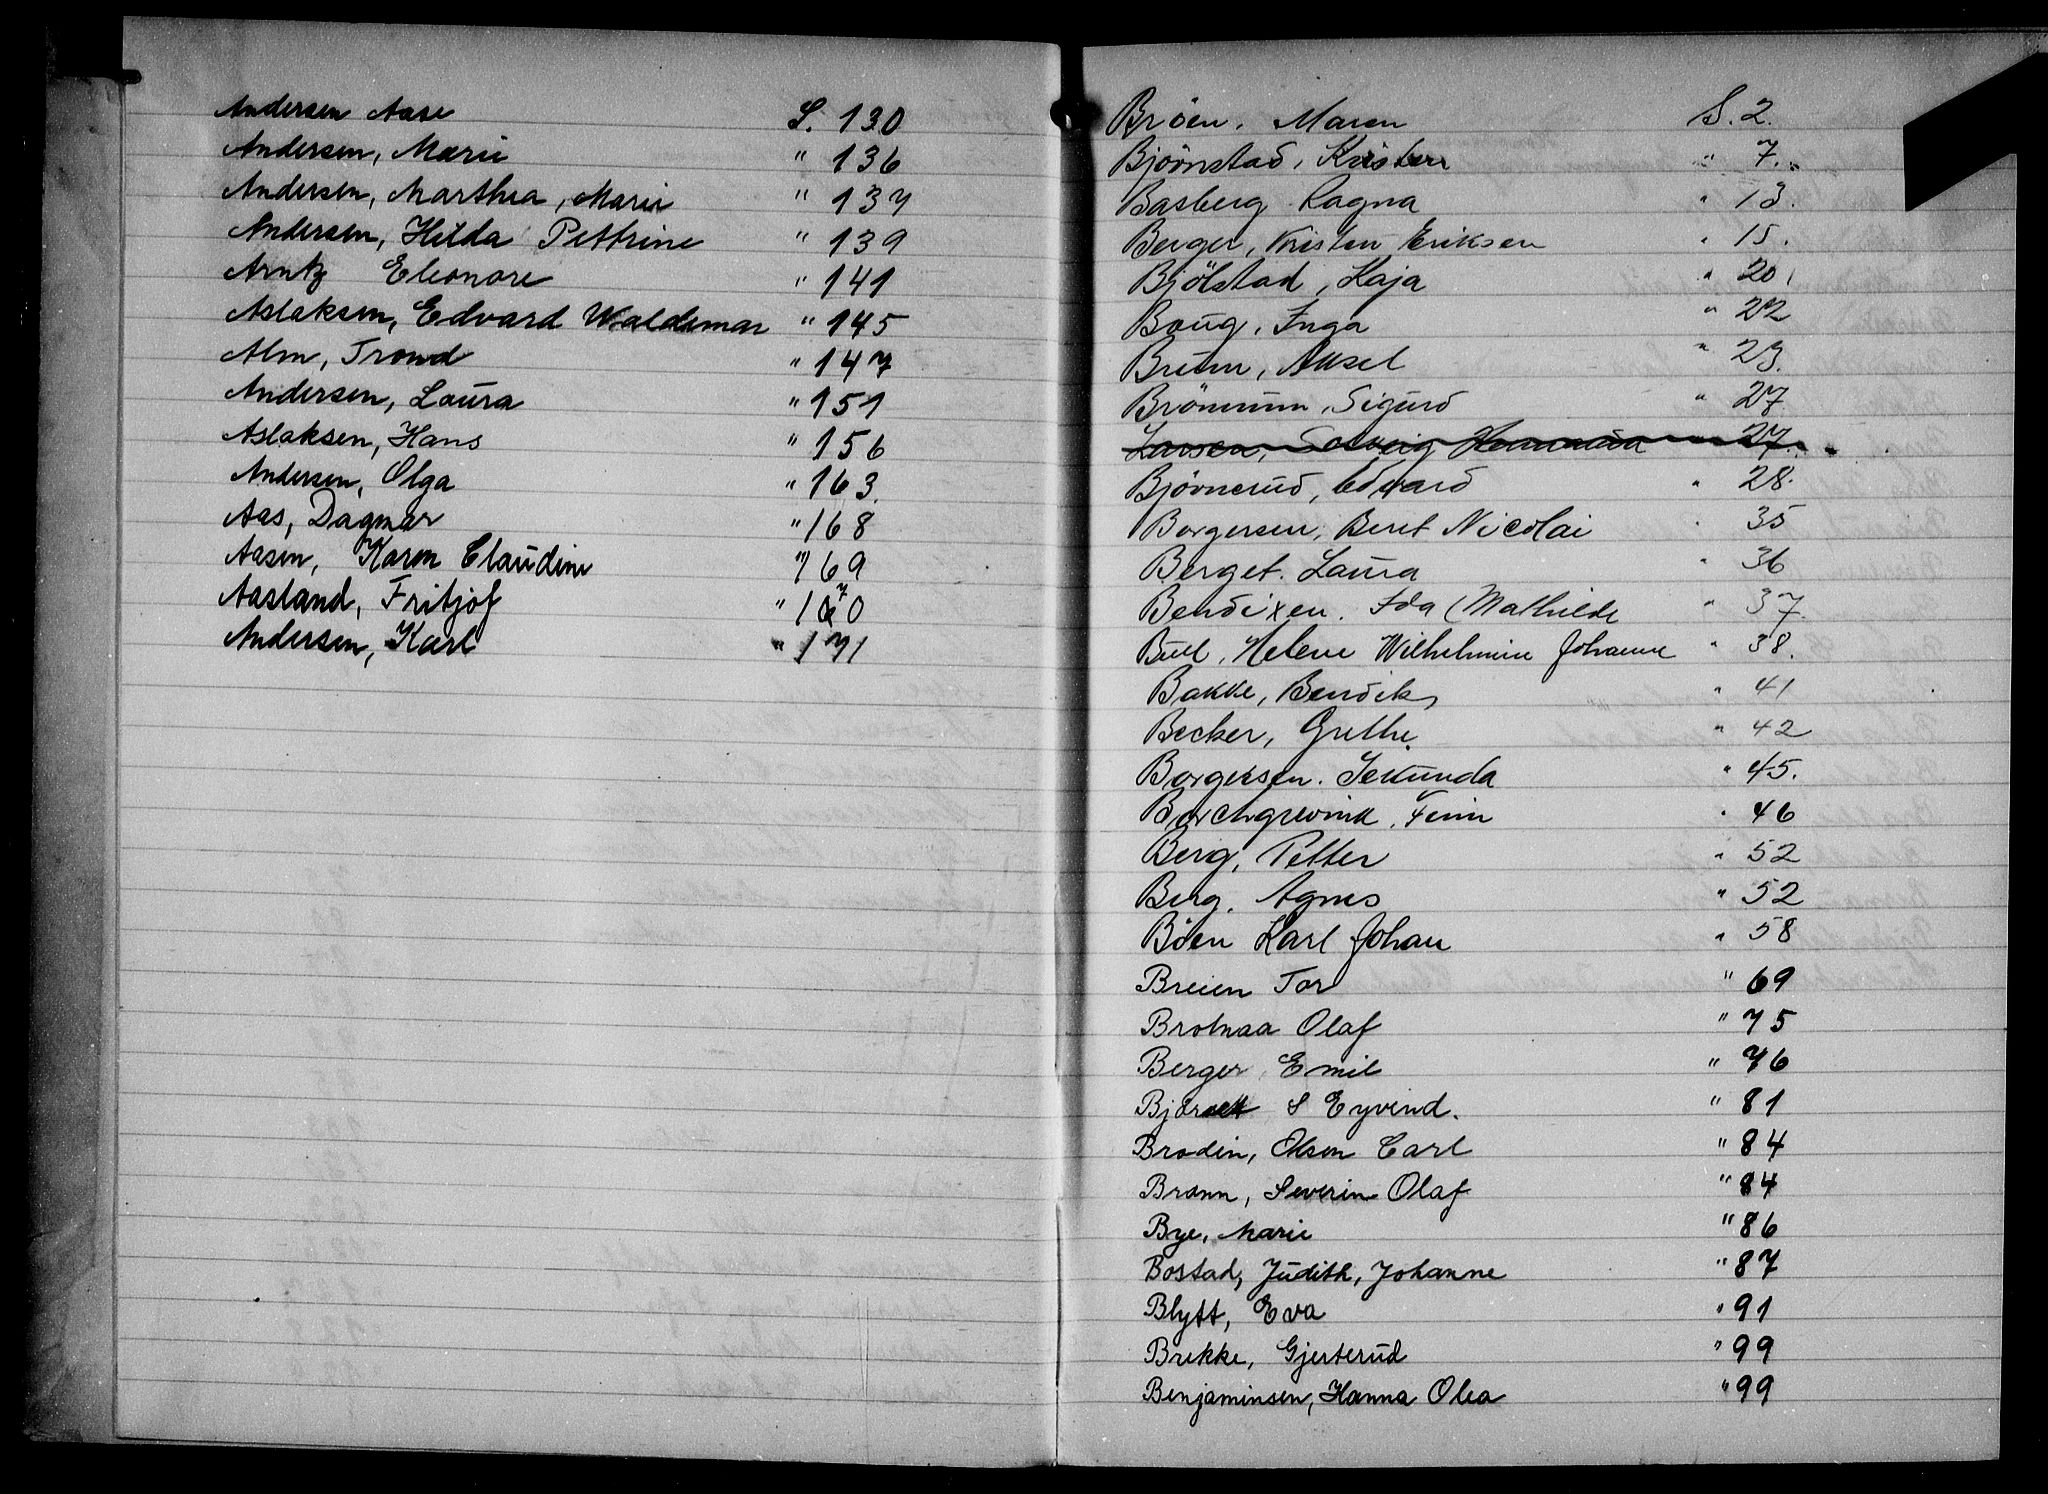 Andersen Aase S. 130
Andersen, Marie " 136
Andersen, Marthea, Marie " 137
Andersen, Hilda Pettrine " 139
Arntz Eleonore " 141
Aslaksen, Edvard Waldemar " 145
Alm, Trond " 147
Andersen, Laura " 151
Aslaksen, Hans " 156
Andersen, Olga " 163.
Aas, Dagmar " 168
Aasen, Karen Claudine " 169
Aasland, Fritjof " 170
Andersen, Karl " 171
Bröen, Maren S. 2.
Bjørnstad, Kristen " 7.
Basberg Ragna " 13.
Berger, Kristen Eriksen " 15.
Bjölstad, Kaja " 20.
Boug, Inga " 22
Bruun, Aksel " 23.
Sigurd " 27
Larsen, Solveig 27.
Bjørnerud, Edvard " 28.
Borgersen, Beret Nicolai " 35
Berget. Laura " 36
Bendixen. Ida Mathilde " 37.
Bull, Helene Wilhelmine Johanne " 38.
Bakke, Bendik " 41
Becker, Grethe " 42
Borgersen. Sekunda " 45.
Borchgrevink, Finn " 46
Berg, Petter " 52
Berg, Agnes " 52
Böen Karl Johan " 58
Breien Tor " 69
Brotnaa Olaf " 75
Berger, Emil " 76
S Eyvind. " 81
Brodin, Olsen Carl " 84
Brann, Severin Olaf " 84
Bye, Marie " 86
Bostad, Judith, Johanne " 87
Blytt, Eva " 91
Brekke, Gjerterud " 99
Benjaminsen, Hanna Olea " 99